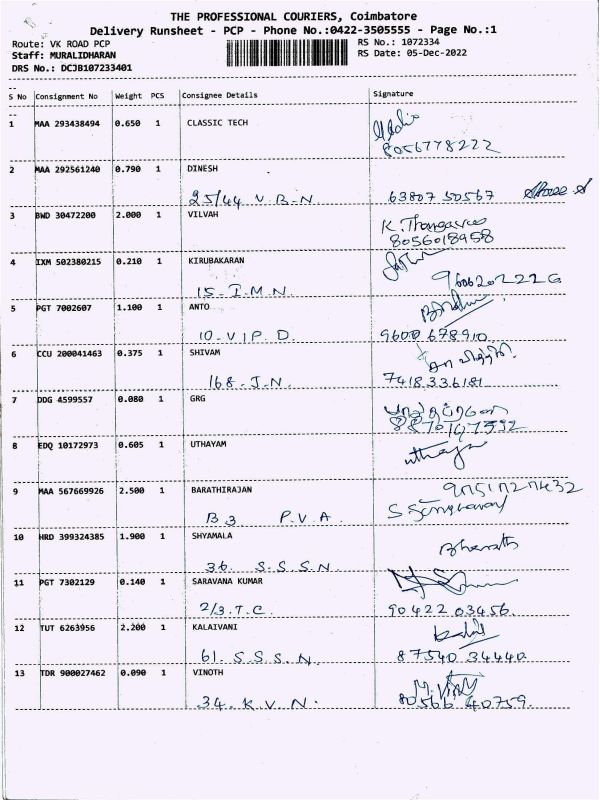 THE PROFESSIONAL COURIERS, Coimbatore
Delivery Runsheet - PCP - Phone No.:0422-3505555 - Page No.:1
Route: VK ROAD PCP RS No.: 1072334
Staff: MURALIDHARAN RS Date: 05-Dec-2022
DRS No.: DCJB107233401
S No Consignment No Weight PCS Consignee Details Signature
1 MAA 293438494 0.650 1 CLASSIC TECH
8056778222
2 MAA 292561240 0.790 1 DINESH
25/44 V.B.N. 63807 50567
3 BWD 30472200 2.000 1 VILVAH K. Thangavel
8056018958
4 IXM 502380215 0.210 1 KIRUBAKARAN
15-I.M.N. 9600202226
5 PGT 7002607 1.100 1 ANTO
10.V.I.P.D. 9600 678910
6 CCU 200041463 0.375 1 SHIVAM
168-J.N. 7418336181
7 DDG 4599557 0.080 1 GRG
8870147392
8 EDQ 10172973 0.605 1 UTHAYAM uthaya
9 MAA 567669926 2.500 1 BARATHIRAJAN
B3 P.V.A.
10 HRD 399324385 1.900 1 SHYAMALA Bharath
36. S.S.S.N.
11 PGT 7302129 0.140 1 SARAVANA KUMAR
2/3.T.C. 90422 03456
12 TUT 6263956 2.200 1 KALAIVANI
61. S.S.S.N. 87540 34440
13 TDR 900027462 0.090 1 VINOTH
34.K.V.N. 80566 40759.